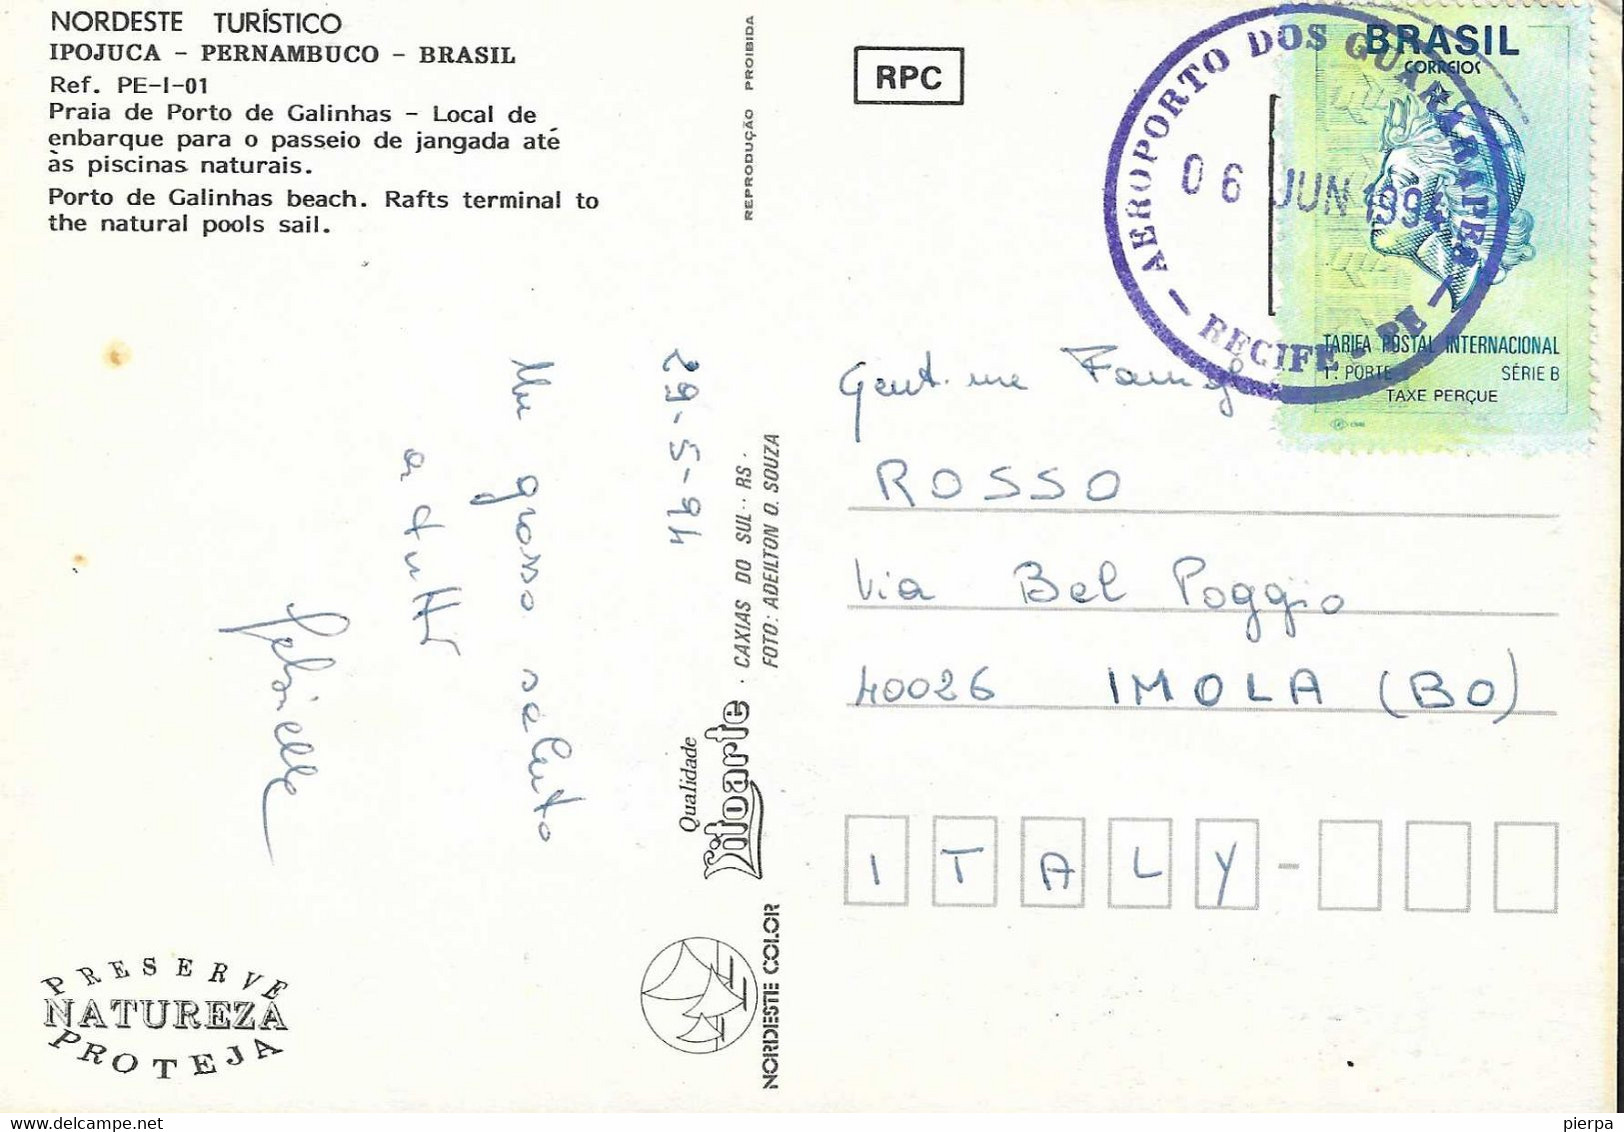 NORDESTE TURÍSTICO
IPOJUCA - PERNAMBUCO - BRASIL
Ref. PE-I-01
Praia de Porto de Galinhas - Local de
enbarque para o passeio de jangada até
às piscinas naturais.
Porto de Galinhas beach. Rafts terminal to
the natural pools sail.
REPRODUÇÃO PROIBIDA
RPC
AEROPORTO DOS GUARARAPES
06 JUN 1994
RECIFE - PE
BRASIL
CORREIOS
TARIFA POSTAL INTERNACIONAL
1º. PORTE SÉRIE B
TAXE PERÇUE
29-5-94
Un grosso saluto
a tutti
Gabriella
Gent.me Famigl
ROSSO
Via Bel Poggio
40026 IMOLA (BO)
ITALY-
CAXIAS DO SUL·· RS ·
FOTO: ADEILTON O. SOUZA
Qualidade
Litoarte
NORDESTE COLOR
PRESERVE
NATUREZA
PROTEJA
pierpa